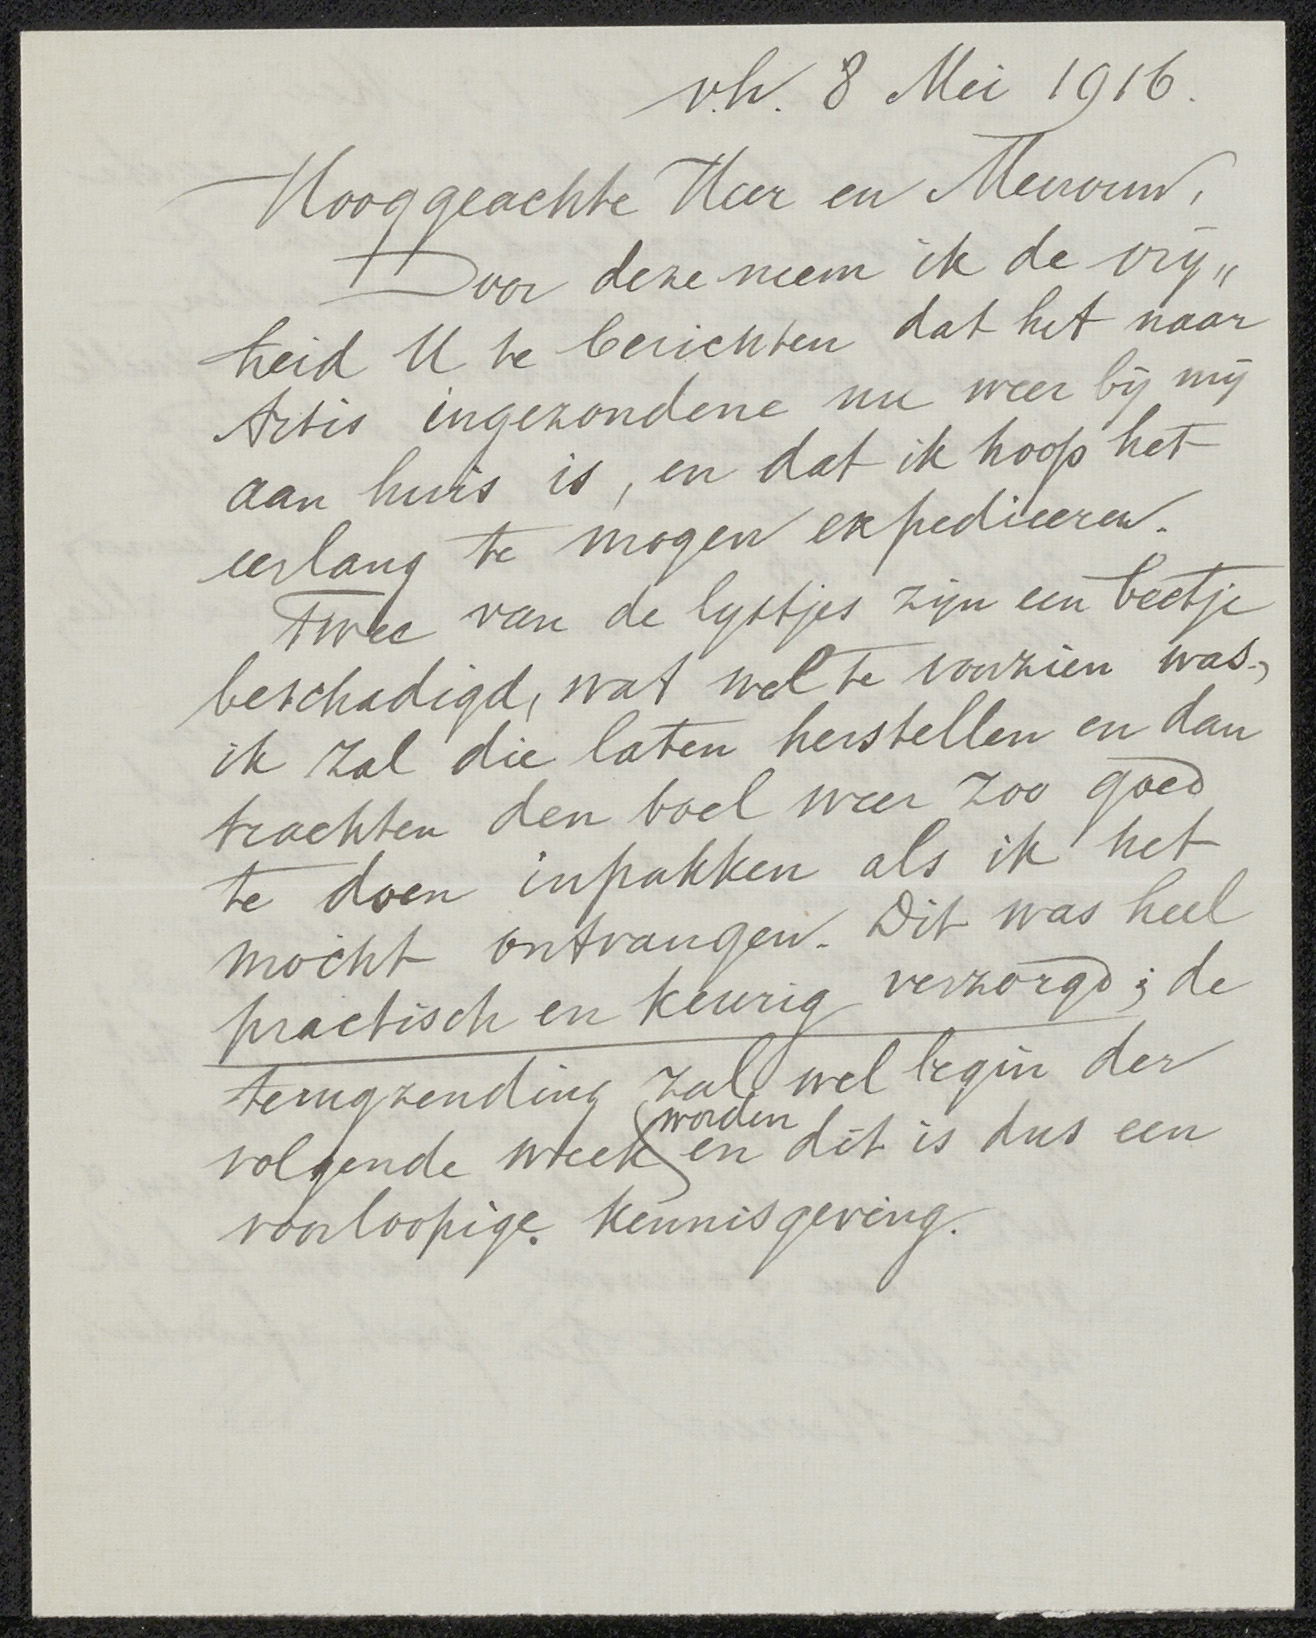 v.h. 8 Mei 1916.
Hooggeachte Heer en Mevrouw,
Door deze neem ik de vrij„
heid U te berichten dat het naar
Artis ingezondene nu weer bij mij
aan huis is, en dat ik hoop het
eerlang te mogen expedieeren.
Twee van de lystjes zijn een beetje
beschadigd, wat wel te voorzien was,
ik zal die laten herstellen en dan
trachten den boel weer zoo goed
te doen inpakken als ik het
mocht ontvangen. Dit was heel
practisch en keurig verzorgd; de
terugzending zal wel begin der
worden
volgende week en dit is dus een
voorloopige kennisgeving.